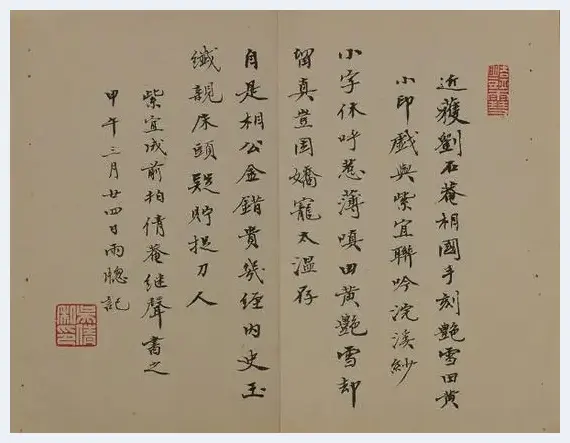 近獲劉石菴相國手刻艷雪田黃
小印戲與紫宜聯吟浣溪紗
小字休呼惹薄嗔田黃艷雪却
留真豈因嬌寵太溫存
自是相公金錯貴幾經內史玉
纖親床頭疑貯捉刀人
紫宜成前拍倩菴继聲書之
甲午三月廿四日雨牕記